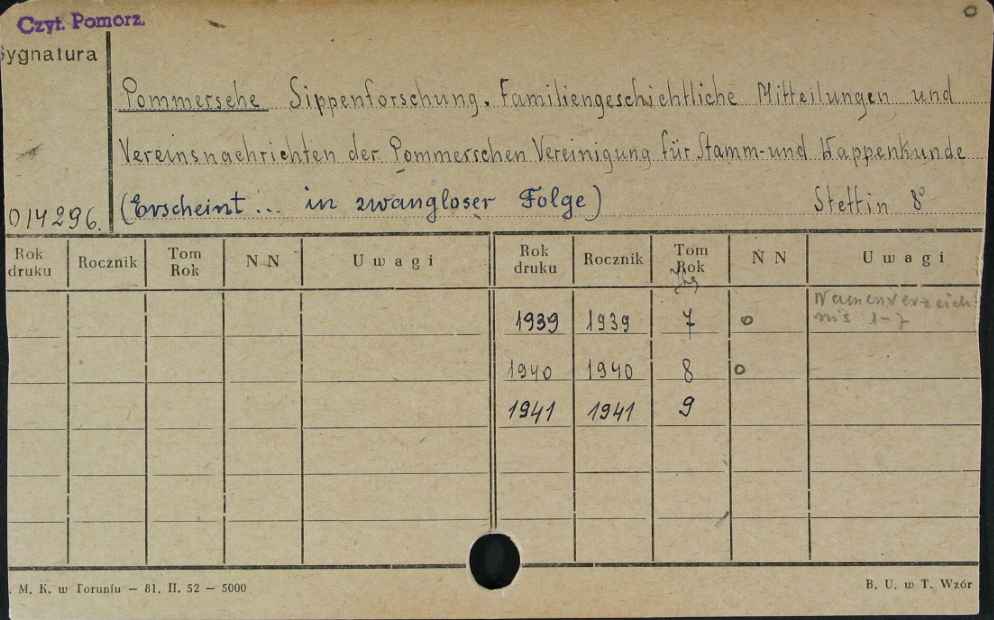 Czyt. Pomorz.
Sygnatura
Pommersche Sippenforschung. Familiengeschichtliche Mitteilungen und
Vereinsnachrichten der Pommerschen Vereinigung für Stamm- und Wappenkunde
014296. (Erscheint... in zwangloser Folge) Stettin 8°
Rok druku Rocznik Tom Rok N N Uwagi Rok druku Rocznik Tom Rok N N Uwagi
1939 1939 7 o Namenverzeich
nis 1-7
1940 1940 8 o
1941 1941 9
. M. K. w Toruniu — 81. II. 52 — 5000 B. U. w T. Wzór